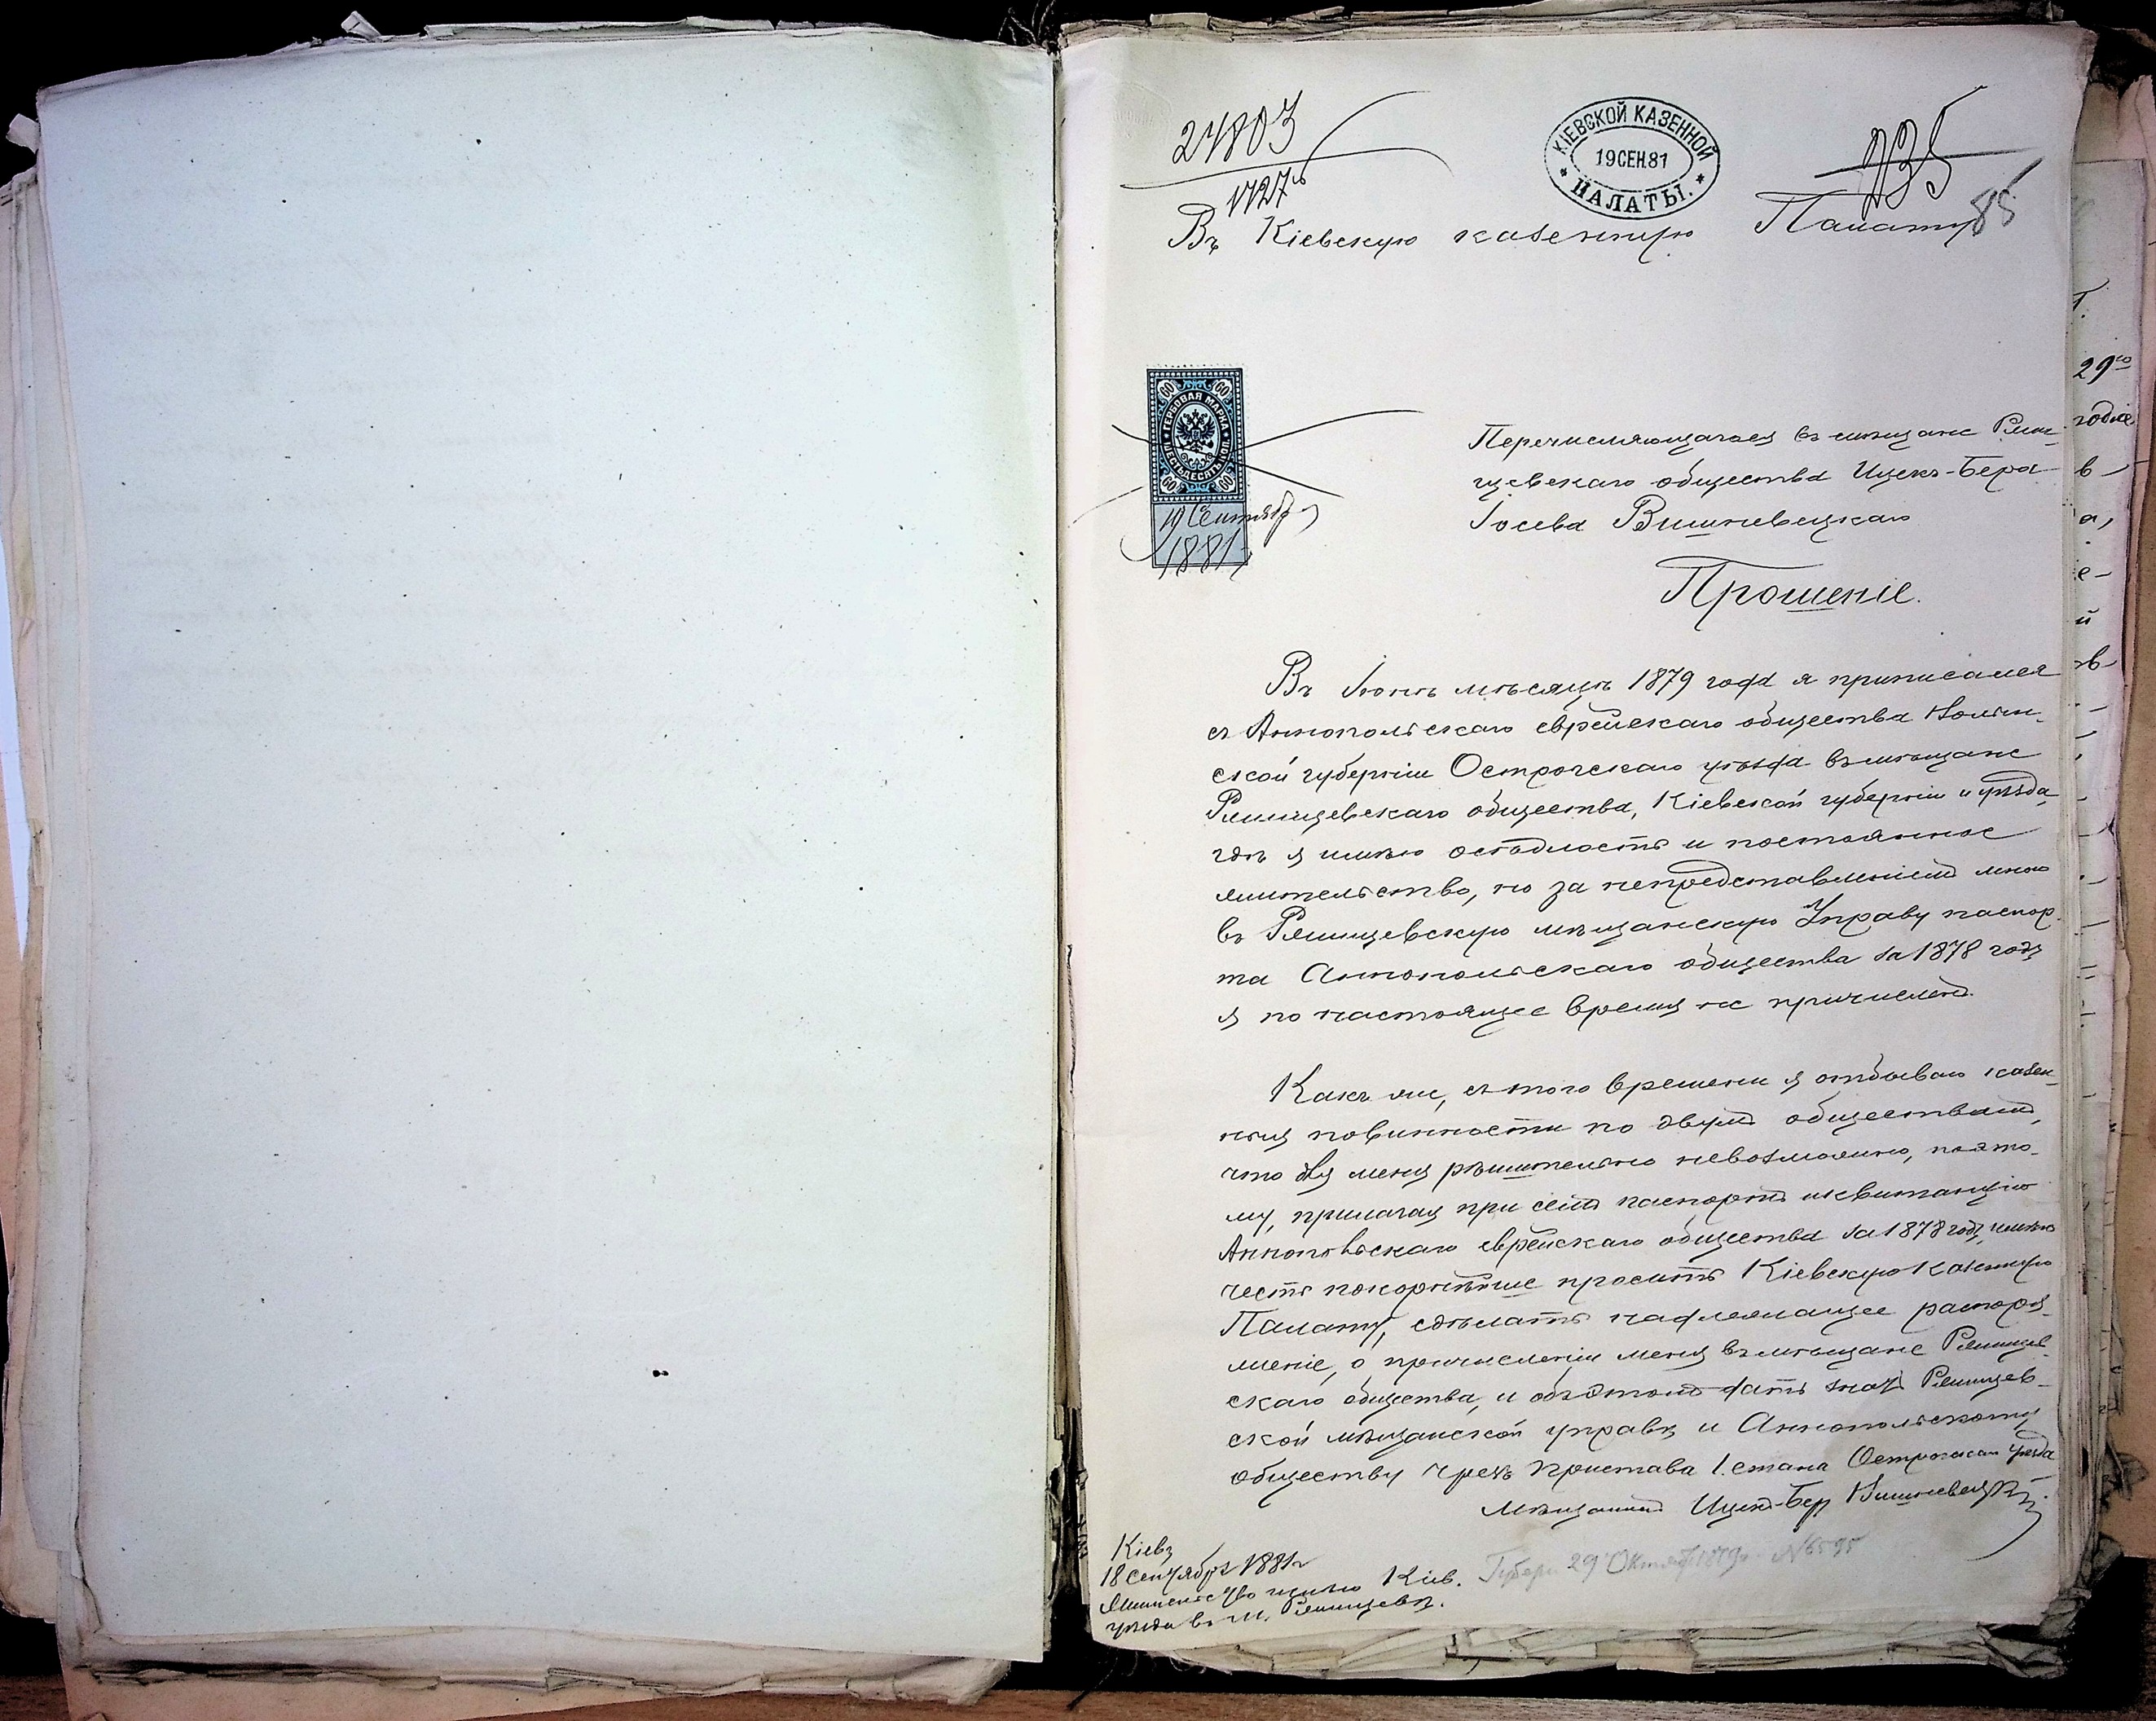 24803
1727
КІЕВСКОЙ КАЗЕННОЙ
19 СЕН. 81
ПАЛАТЫ.
235
85
Въ Кіевскую казенную Палату
60 60
ГЕРБОВАЯ МАРКА
ШЕСТЬДЕСЯТЪ КОП.
60 60
19 Сентября
1881
Перечисляющагося въ мѣщане Ржи-
щевскаго общества Ицекъ-Бера
Іосева Вишневецкаго
Прошеніе.
Въ Іюнѣ мѣсяцѣ 1879 года я приписался
съ Аннопольскаго еврейскаго общества Волын-
ской губерніи Острогскаго уѣзда въ мѣщане
Ржищевскаго общества, Кіевской губерніи и уѣзда,
гдѣ я имѣю осѣдлость и постоянное
жительство, но за непредставленіемъ мною
въ Ржищевскую мѣщанскую Управу паспор-
та Аннопольскаго общества за 1878 годъ
я по настоящее время не причисленъ.
Какъ же, съ того времени я отбываю казен-
ныя повинности по двумъ обществамъ,
что для меня рѣшительно невозможно, поэто-
му, прилагая при семъ паспортъ и квитанцію
Аннопольскаго еврейскаго общества за 1878 годъ, имѣю
честь покорнѣйше просить Кіевскую Казенную
Палату, сдѣлать надлежащее распоря-
женіе, о причисленіи меня въ мѣщане Ржищев-
скаго общества, и объ этомъ дать знать Ржищев-
ской мѣщанской управѣ и Аннопольскому
обществу чрезъ Пристава 1. стана Острожскаго уѣзда
Мѣщанинъ Ицекъ-Бер Вишневецкій
Кіевъ
18 Сентября 1881 г
Жительство имѣю Кіев.
уѣзда въ м. Ржищевѣ.
Губерн 29 Октяб 1879 г №
29го